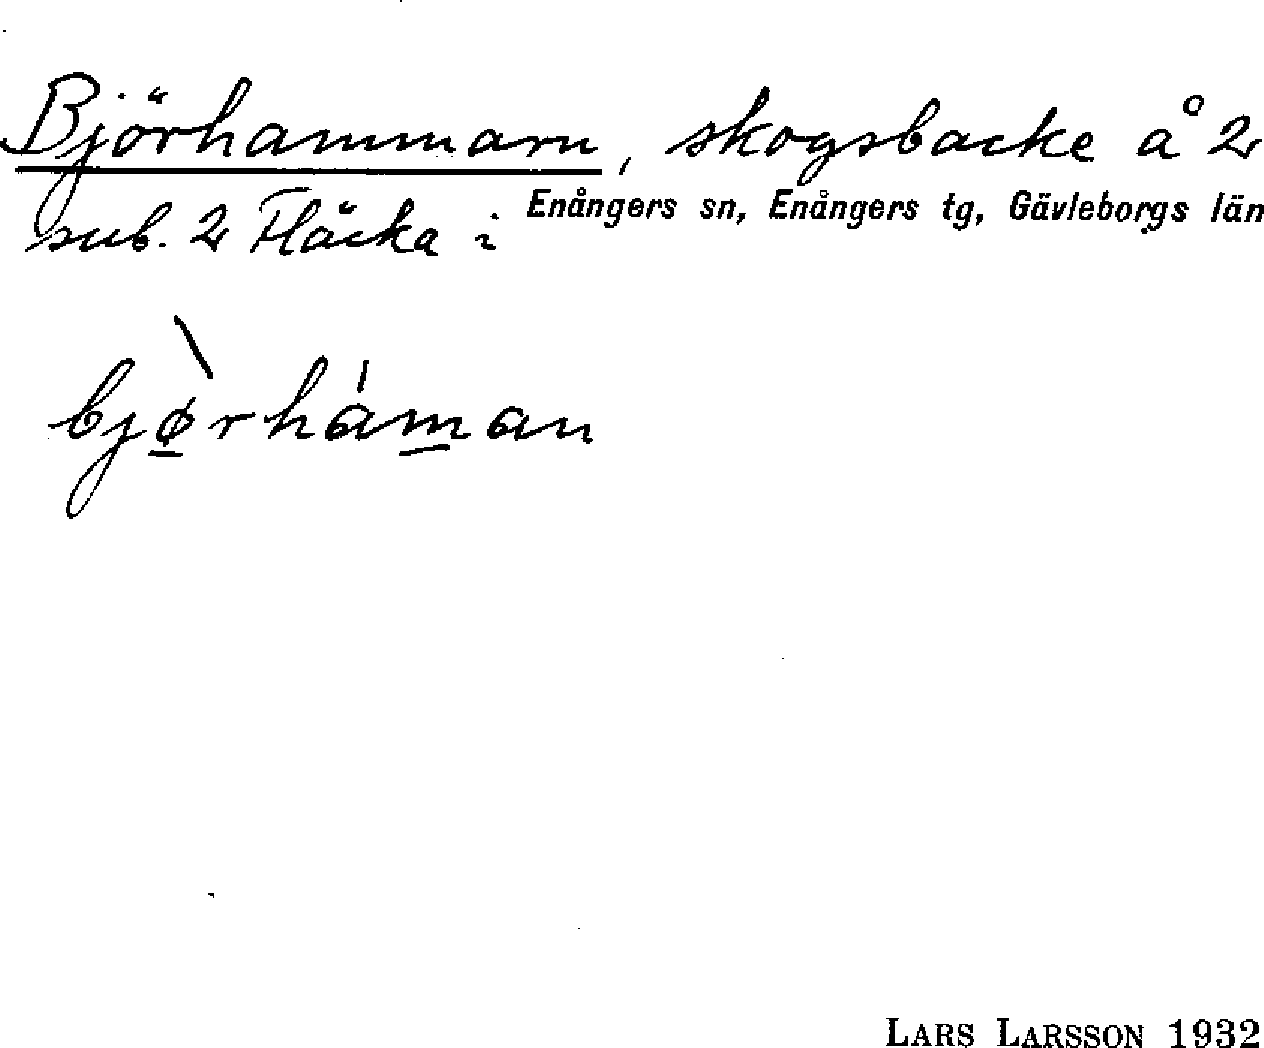 Björhammarn, skogsbacke å 2
sub. 2 Fläcka i Enångers sn, Enångers tg, Gävleborgs län
bjørháman
LARS LARSSON 1932